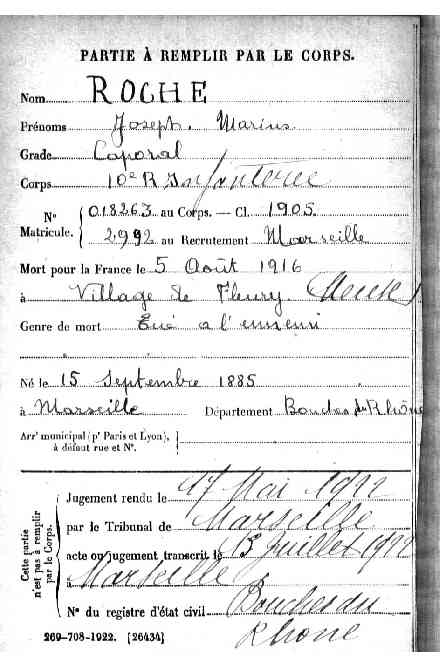 PARTIE À REMPLIR PAR LE CORPS.
Nom ROCHE
Prénoms Joseph. Marius
Grade Caporal
Corps 10e R Infanterie
No Matricule. 018263 au Corps. — Cl. 1905.
2992 au Recrutement Marseille
Mort pour la France le 5 Août 1916
à Village de Fleury (Meuse)
Genre de mort Tué a l'ennemi
Né le 15 Septembre 1885
à Marseille Département Bouches du Rhône
Arrt municipal (pr Paris et Lyon),
à défaut rue et No.
Cette partie n'est pas à remplir par le Corps.
Jugement rendu le 17 Mai 1922
par le Tribunal de Marseille
acte ou jugement transcrit le 13 Juillet 1922
à Marseille
No du registre d'état civil Bouches du
Rhone
269-708-1922. [26434]